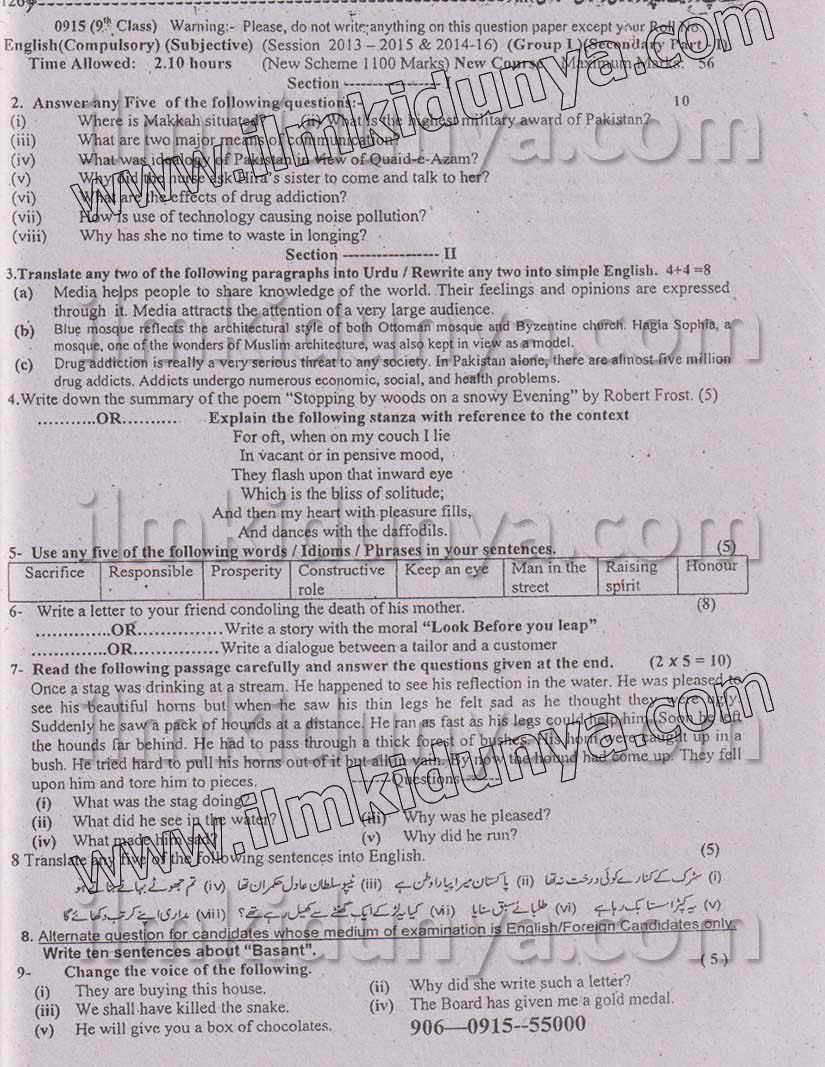 0915 (9th Class) Warning:- Please, do not write anything on this question paper except your Roll No.
English(Compulsory) (Subjective) (Session 2013 – 2015 & 2014-16) (Group I) (Secondary Part - I)
Time Allowed: 2.10 hours (New Scheme 1100 Marks) New Course Maximum Marks: 56
Section ---------------- I
2. Answer any Five of the following questions:- 10
(i) Where is Makkah situated? (ii) What is the highest military award of Pakistan?
(iii) What are two major means of communication?
(iv) What was ideology of Pakistan in view of Quaid-e-Azam?
(v) Why did the nurse ask Hira's sister to come and talk to her?
(vi) What are the effects of drug addiction?
(vii) How is use of technology causing noise pollution?
(viii) Why has she no time to waste in longing?
Section ---------------- II
3.Translate any two of the following paragraphs into Urdu / Rewrite any two into simple English. 4+4 =8
(a) Media helps people to share knowledge of the world. Their feelings and opinions are expressed
through it. Media attracts the attention of a very large audience.
(b) Blue mosque reflects the architectural style of both Ottoman mosque and Byzentine church. Hagia Sophia, a
mosque, one of the wonders of Muslim architecture, was also kept in view as a model.
(c) Drug addiction is really a very serious threat to any society. In Pakistan alone, there are almost five million
drug addicts. Addicts undergo numerous economic, social, and health problems.
4.Write down the summary of the poem “Stopping by woods on a snowy Evening” by Robert Frost. (5)
...........OR.......... Explain the following stanza with reference to the context
For oft, when on my couch I lie
In vacant or in pensive mood,
They flash upon that inward eye
Which is the bliss of solitude;
And then my heart with pleasure fills,
And dances with the daffodils.
5- Use any five of the following words / Idioms / Phrases in your sentences. (5)
Sacrifice Responsible Prosperity Constructive role Keep an eye Man in the street Raising spirit Honour
6- Write a letter to your friend condoling the death of his mother. (8)
..............OR.............. Write a story with the moral “Look Before you leap”
..............OR.............. Write a dialogue between a tailor and a customer
7- Read the following passage carefully and answer the questions given at the end. (2 x 5 = 10)
Once a stag was drinking at a stream. He happened to see his reflection in the water. He was pleased to
see his beautiful horns but when he saw his thin legs he felt sad as he thought they were ugly.
Suddenly he saw a pack of hounds at a distance. He ran as fast as his legs could help him. Soon he left
the hounds far behind. He had to pass through a thick forest of bushes. His horn were caught up in a
bush. He tried hard to pull his horns out of it but all in vain. By now the hound had come up. They fell
upon him and tore him to pieces. --------Questions-------
(i) What was the stag doing?
(ii) What did he see in the water? (iii) Why was he pleased?
(iv) What made him sad? (v) Why did he run?
8 Translate any five of the following sentences into English. (5)
(i) سڑک کے کنارے کوئی درخت نہ تھا (ii) پاکستان میرا پیارا وطن ہے (iii) ٹیپو سلطان عادل حکمران تھا (iv) تم جھوٹے بہانے بناتے ہو
(v) یہ کپڑا سستا بک رہا ہے (vi) طلبا نے سبق سنایا (vii) کیا لڑکے ایک گھنٹے سے کھیل رہے تھے؟ (viii) مداری اپنے کرتب دکھائے گا
8. Alternate question for candidates whose medium of examination is English/Foreign Candidates only.
Write ten sentences about “Basant”. (5)
9- Change the voice of the following.
(i) They are buying this house. (ii) Why did she write such a letter?
(iii) We shall have killed the snake. (iv) The Board has given me a gold medal.
(v) He will give you a box of chocolates. 906—0915--55000
www.ilmkidunya.com
ilmkidunya.com
ilmkidunya.com
ilmkidunya.com
www.ilmkidunya.com
ilmkidunya.com
ilmkidunya.com